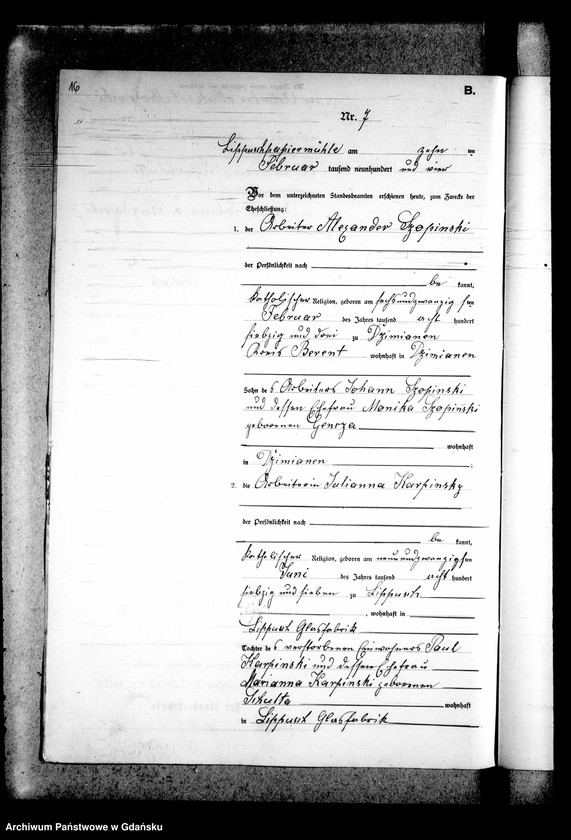 16
B.
Nr. 7
Lippuschpapiermühle am zehn ten
Februar tausend neunhundert und vier
Vor dem unterzeichneten Standesbeamten erschienen heute, zum Zwecke der
Eheschließung:
1. der Arbeiter Alexander Szopinski
der Persönlichkeit nach
be kannt,
katholischer Religion, geboren am sechsundzwanzig sten
Februar des Jahres tausend acht hundert
siebzig und drei zu Dzimianen
Kreis Berent wohnhaft in Dzimianen
Sohn des Arbeiters Johann Szopinski
und dessen Ehefrau Monika Szopinski
geborenen
wohnhaft
in Dzimianen
2. die Arbeiterin Julianna Karpinsky
der Persönlichkeit nach
be kannt,
katholischer Religion, geboren am neunundzwanzigsten
Juni des Jahres tausend acht hundert
siebzig und sieben zu Lippusch
, wohnhaft in
Lippusch Glasfabrik
Tochter des verstorbenen Einwohners Paul
Karpinski und dessen Ehefrau
Marianna Karpinski geborenen
wohnhaft
in Lippusch Glasfabrik
Archiwum Państwowe w Gdańsku